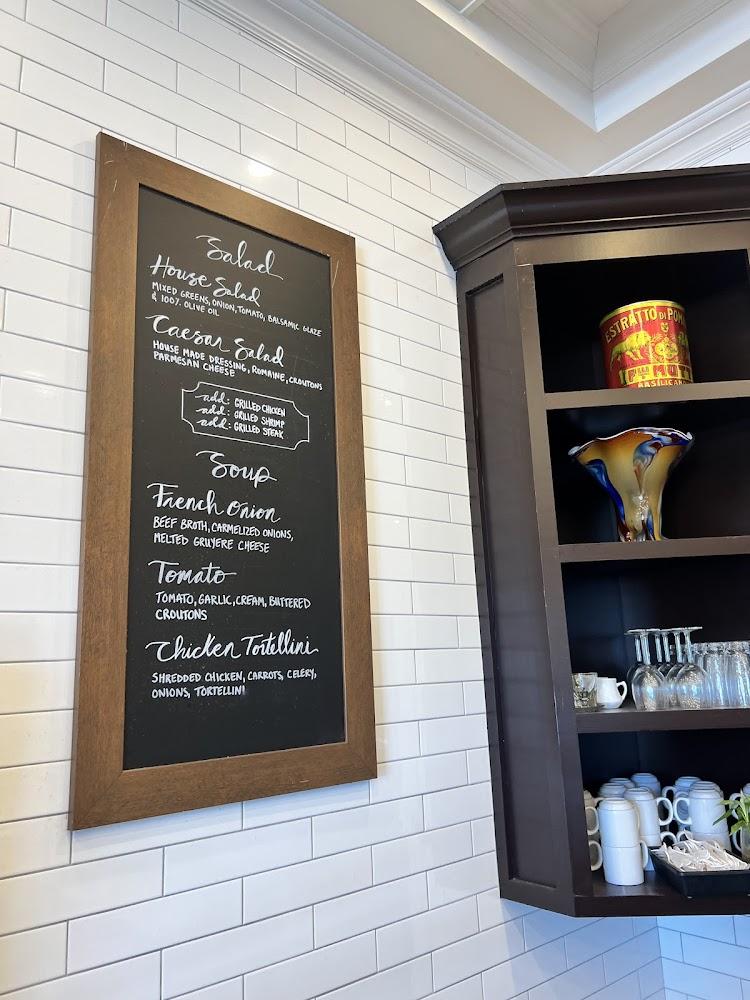 Salad
House Salad
MIXED GREENS, ONION, TOMATO, BALSAMIC GLAZE
& 100% OLIVE OIL
Caesar Salad
HOUSE MADE DRESSING, ROMAINE, CROUTONS
PARMESAN CHEESE
add: GRILLED CHICKEN
add: GRILLED SHRIMP
add: GRILLED STEAK
Soup
French Onion
BEEF BROTH, CARMELIZED ONIONS,
MELTED GRUYERE CHEESE
Tomato
TOMATO, GARLIC, CREAM, BUTTERED
CROUTONS
Chicken Tortellini
SHREDDED CHICKEN, CARROTS, CELERY,
ONIONS, TORTELLINI
ESTRATTO DI